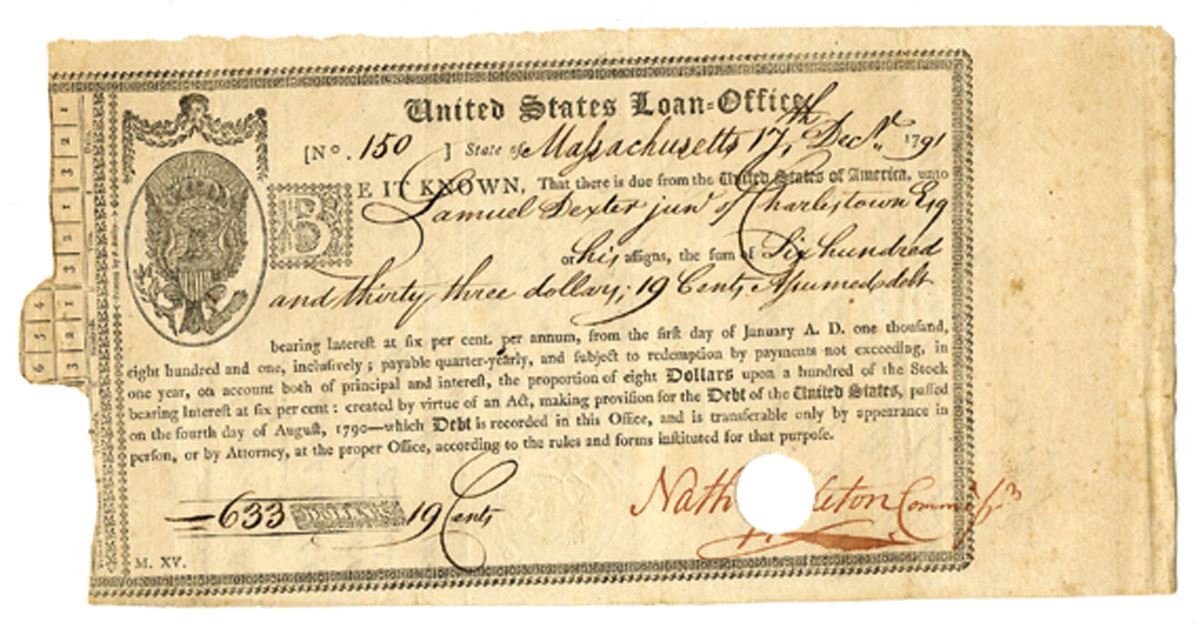 United States Loan=Office
[No. 150 ] State of Massachusetts 17th, Decr.. 1791
BE IT KNOWN, That there is due from the United States of America, unto
Samuel Dexter junr of Charlestown Esq
or his aſſigns, the ſum of Six hundred
and thirty three dollars; 19 Cents Aſsumed debt
bearing Intereſt at ſix per cent. per annum, from the firſt day of January A. D. one thouſand,
eight hundred and one, incluſively; payable quarter-yearly, and ſubject to redemption by payments not exceeding, in
one year, on account both of principal and intereſt, the proportion of eight Dollars upon a hundred of the Stock
bearing Intereſt at ſix per cent: created by virtue of an Act, making proviſion for the Debt of the United States, paſſed
on the fourth day of August, 1790—which Debt is recorded in this Office, and is transferable only by appearance in
perſon, or by Attorney, at the proper Office, according to the rules and forms inſtituted for that purpoſe.
633 DOLLARS 19 Cents
Nath leton
M. XV.